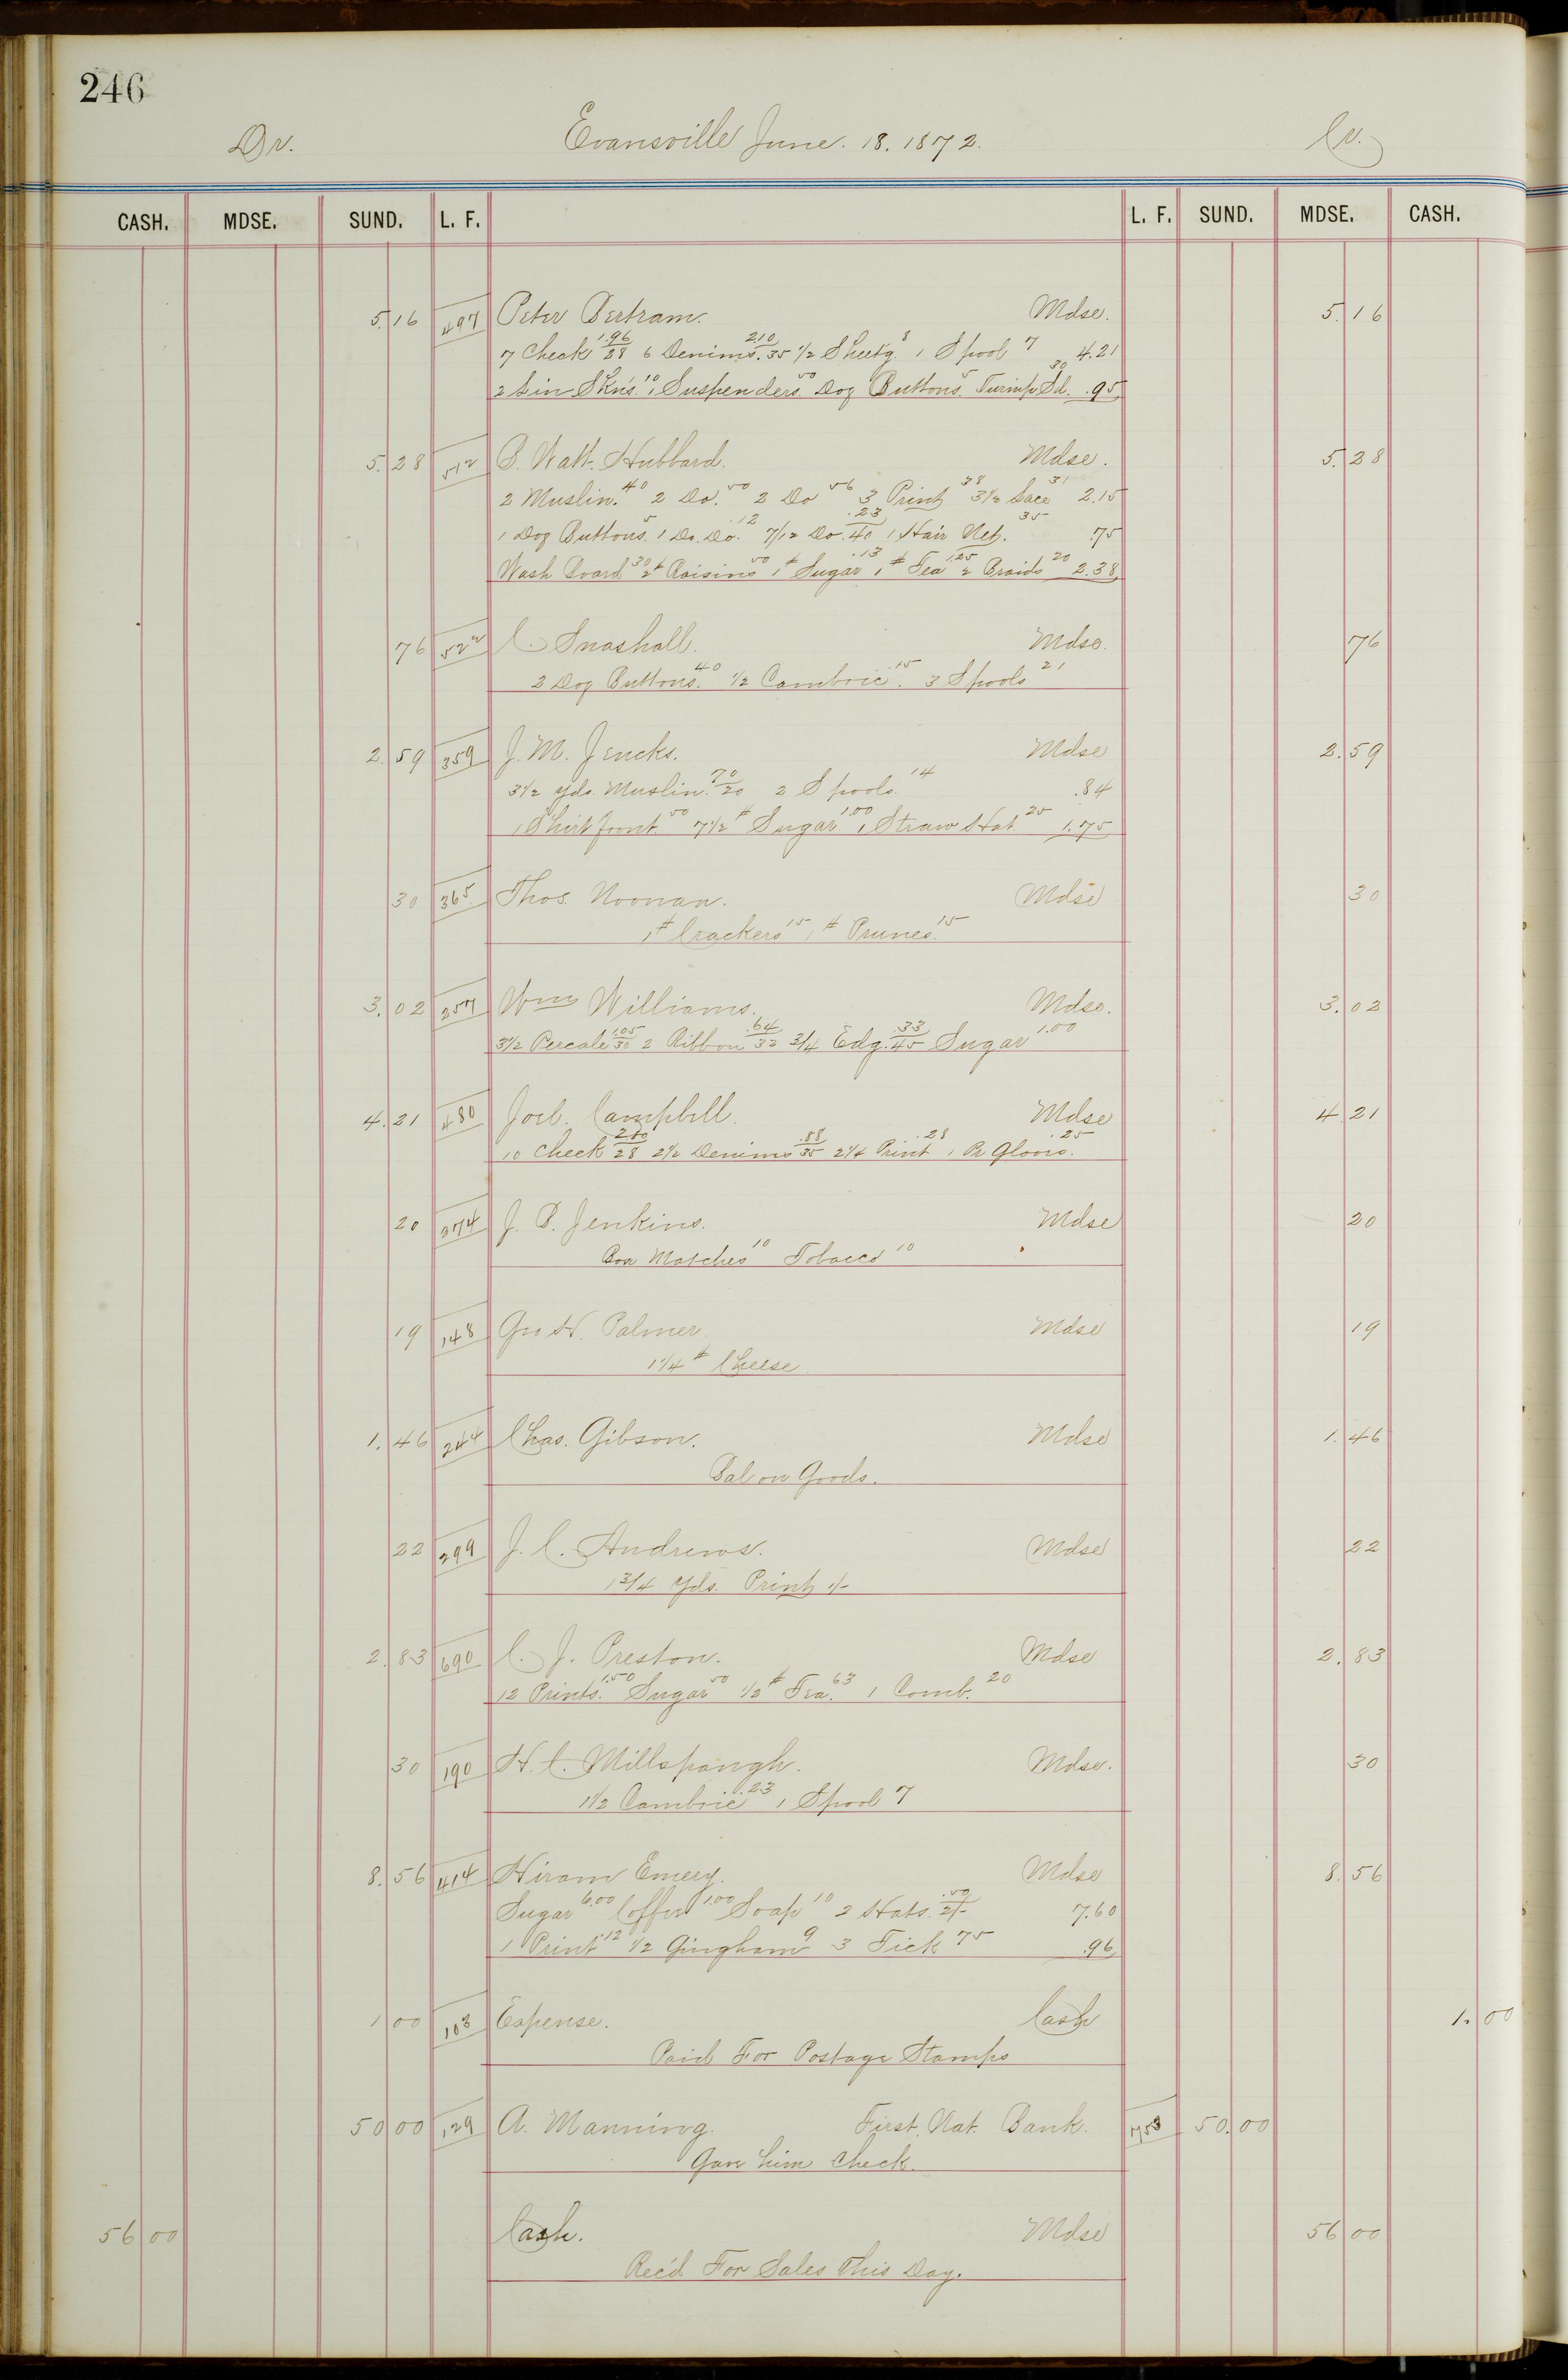 246
Dr. Evansville June. 18. 1872. Cr.
CASH. MDSE. SUND. L. F. L. F. SUND. MDSE. CASH.
5.16 497 Peter Bertram. Mdse. 5.16
7 Check 1.96/28 6 Denims. 2.10/35 1/2 Sheet'g 8 1 Spool 7 4.21
2 Lin Sk'ns. 10 1 Suspenders. 50 Doz Buttons. 5 Turnip Sd. 30 .95
5.28 512 B. Watt. Hubbard. Mdse. 5.28
2 Muslin. 40 2 Do. 50 2 Do 56 3 Print 38 3 1/2 Lace 31 2.15
1 Doz Buttons. 5 1 Do. Do. .12 7/12 Do. .23/40 1 Hair Net. 35 .75
Wash Board 30 2# Raisins 50 1# Sugar .13 1# Tea 1.25 2 Braids 20 2.38
76 522 C. Snashall. Mdse. 76
2 Doz Buttons. 40 1/2 Cambric. 15 3 Spools 21
2.59 359 J. M. Jencks. Mdse 2.59
3 1/2 yds. Muslin. 70/20 2 Spools. 14 .84
1 Shirt front 50 7 1/2# Sugar. 1.00 1 Straw Hat 25 1.75
30 365 Thos. Noonan. Mdse 30
1# Crackers 15 1# Prunes. 15
3.02 257 Wm Williams. Mdse. 3.02
3 1/2 Percale 1.05/30 2 Ribbon .64/32 3/4 Edg. .33/45 Sugar 1.00
4.21 480 Joel. Campbell. Mdse 4.21
10 Check 2.80/28 2 1/2 Denims .88/35 2 1/4 Print .28 1 Pr Gloves. .25
20 274 J. B. Jenkins. Mdse 20
Box Matches 10 Tobacco 10
19 148 Geo H. Palmer. Mdse 19
1 1/4# Cheese
1.46 244 Chas. Gibson. Mdse 1.46
Bal on Goods.
22 299 J. C. Andrews. Mdse 22
1 3/4 yds. Print 1/-
2.83 690 C. J. Preston. Mdse 2.83
12 Prints. 1.50 Sugar 50 1/2# Tea. 63 1 Comb. 20
30 190 H. C. Millspaugh. Mdse. 30
1 1/2 Cambric .23 1 Spool 7
8.56 414 Hiram Emery. Mdse 8.56
Sugar 6.00 Coffee 1.00 Soap 10 2 Hats. .50/2/- 7.60
1 Print .12 1/2 Gingham 9 3 Tick 75 .96
1 00 103 Expense. Cash 1.00
Paid For Postage Stamps
50 00 129 A. Manning. First. Nat. Bank. 753 50.00
Gave him Check.
56 00 Cash. Mdse 56 00
Rec'd For Sales This Day.